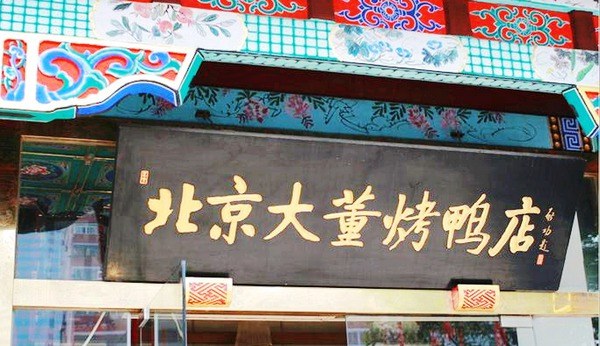 北京大董烤鸭店
启功题